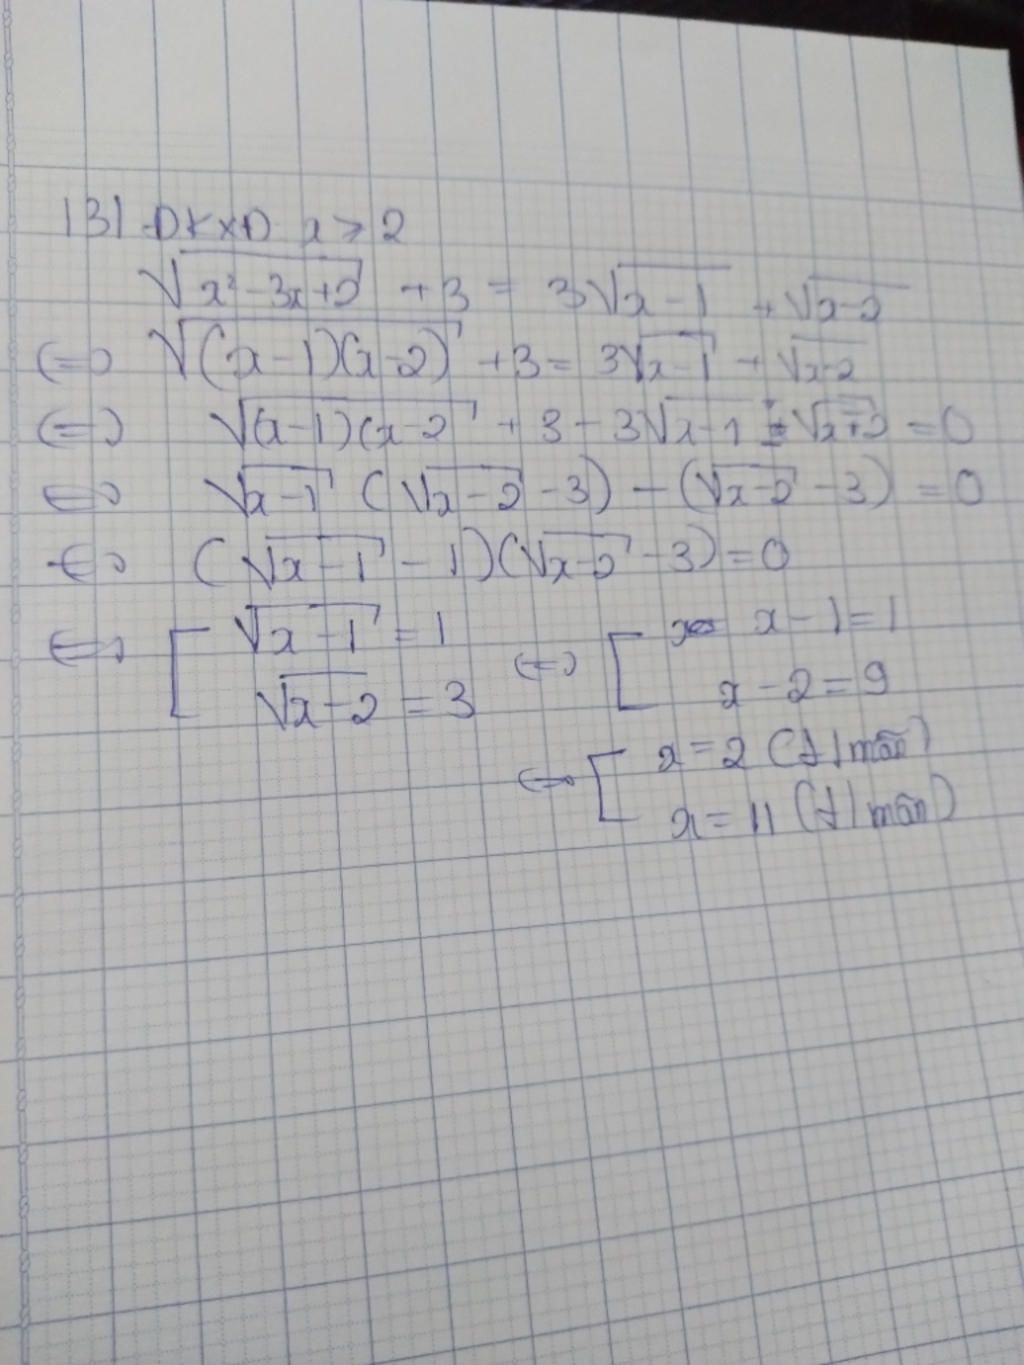 131 ĐKXĐ x ≥ 2
√(x²-3x+2) + 3 = 3√(x-1) + √(x-2)
⇔ √((x-1)(x-2)) + 3 = 3√(x-1) + √(x-2)
⇔ √((x-1)(x-2)) + 3 - 3√(x-1) - √(x-2) = 0
⇔ √(x-1) (√(x-2) - 3) - (√(x-2) - 3) = 0
⇔ (√(x-1) - 1)(√(x-2) - 3) = 0
⇔ [ √(x-1) = 1 ⇔ [ x - 1 = 1
√(x-2) = 3 x - 2 = 9
⇔ [ x = 2 (t/mãn)
x = 11 (t/mãn)